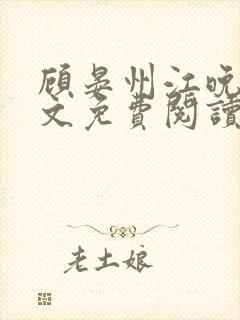 顾晏州江晚
文免费阅读
老土娘